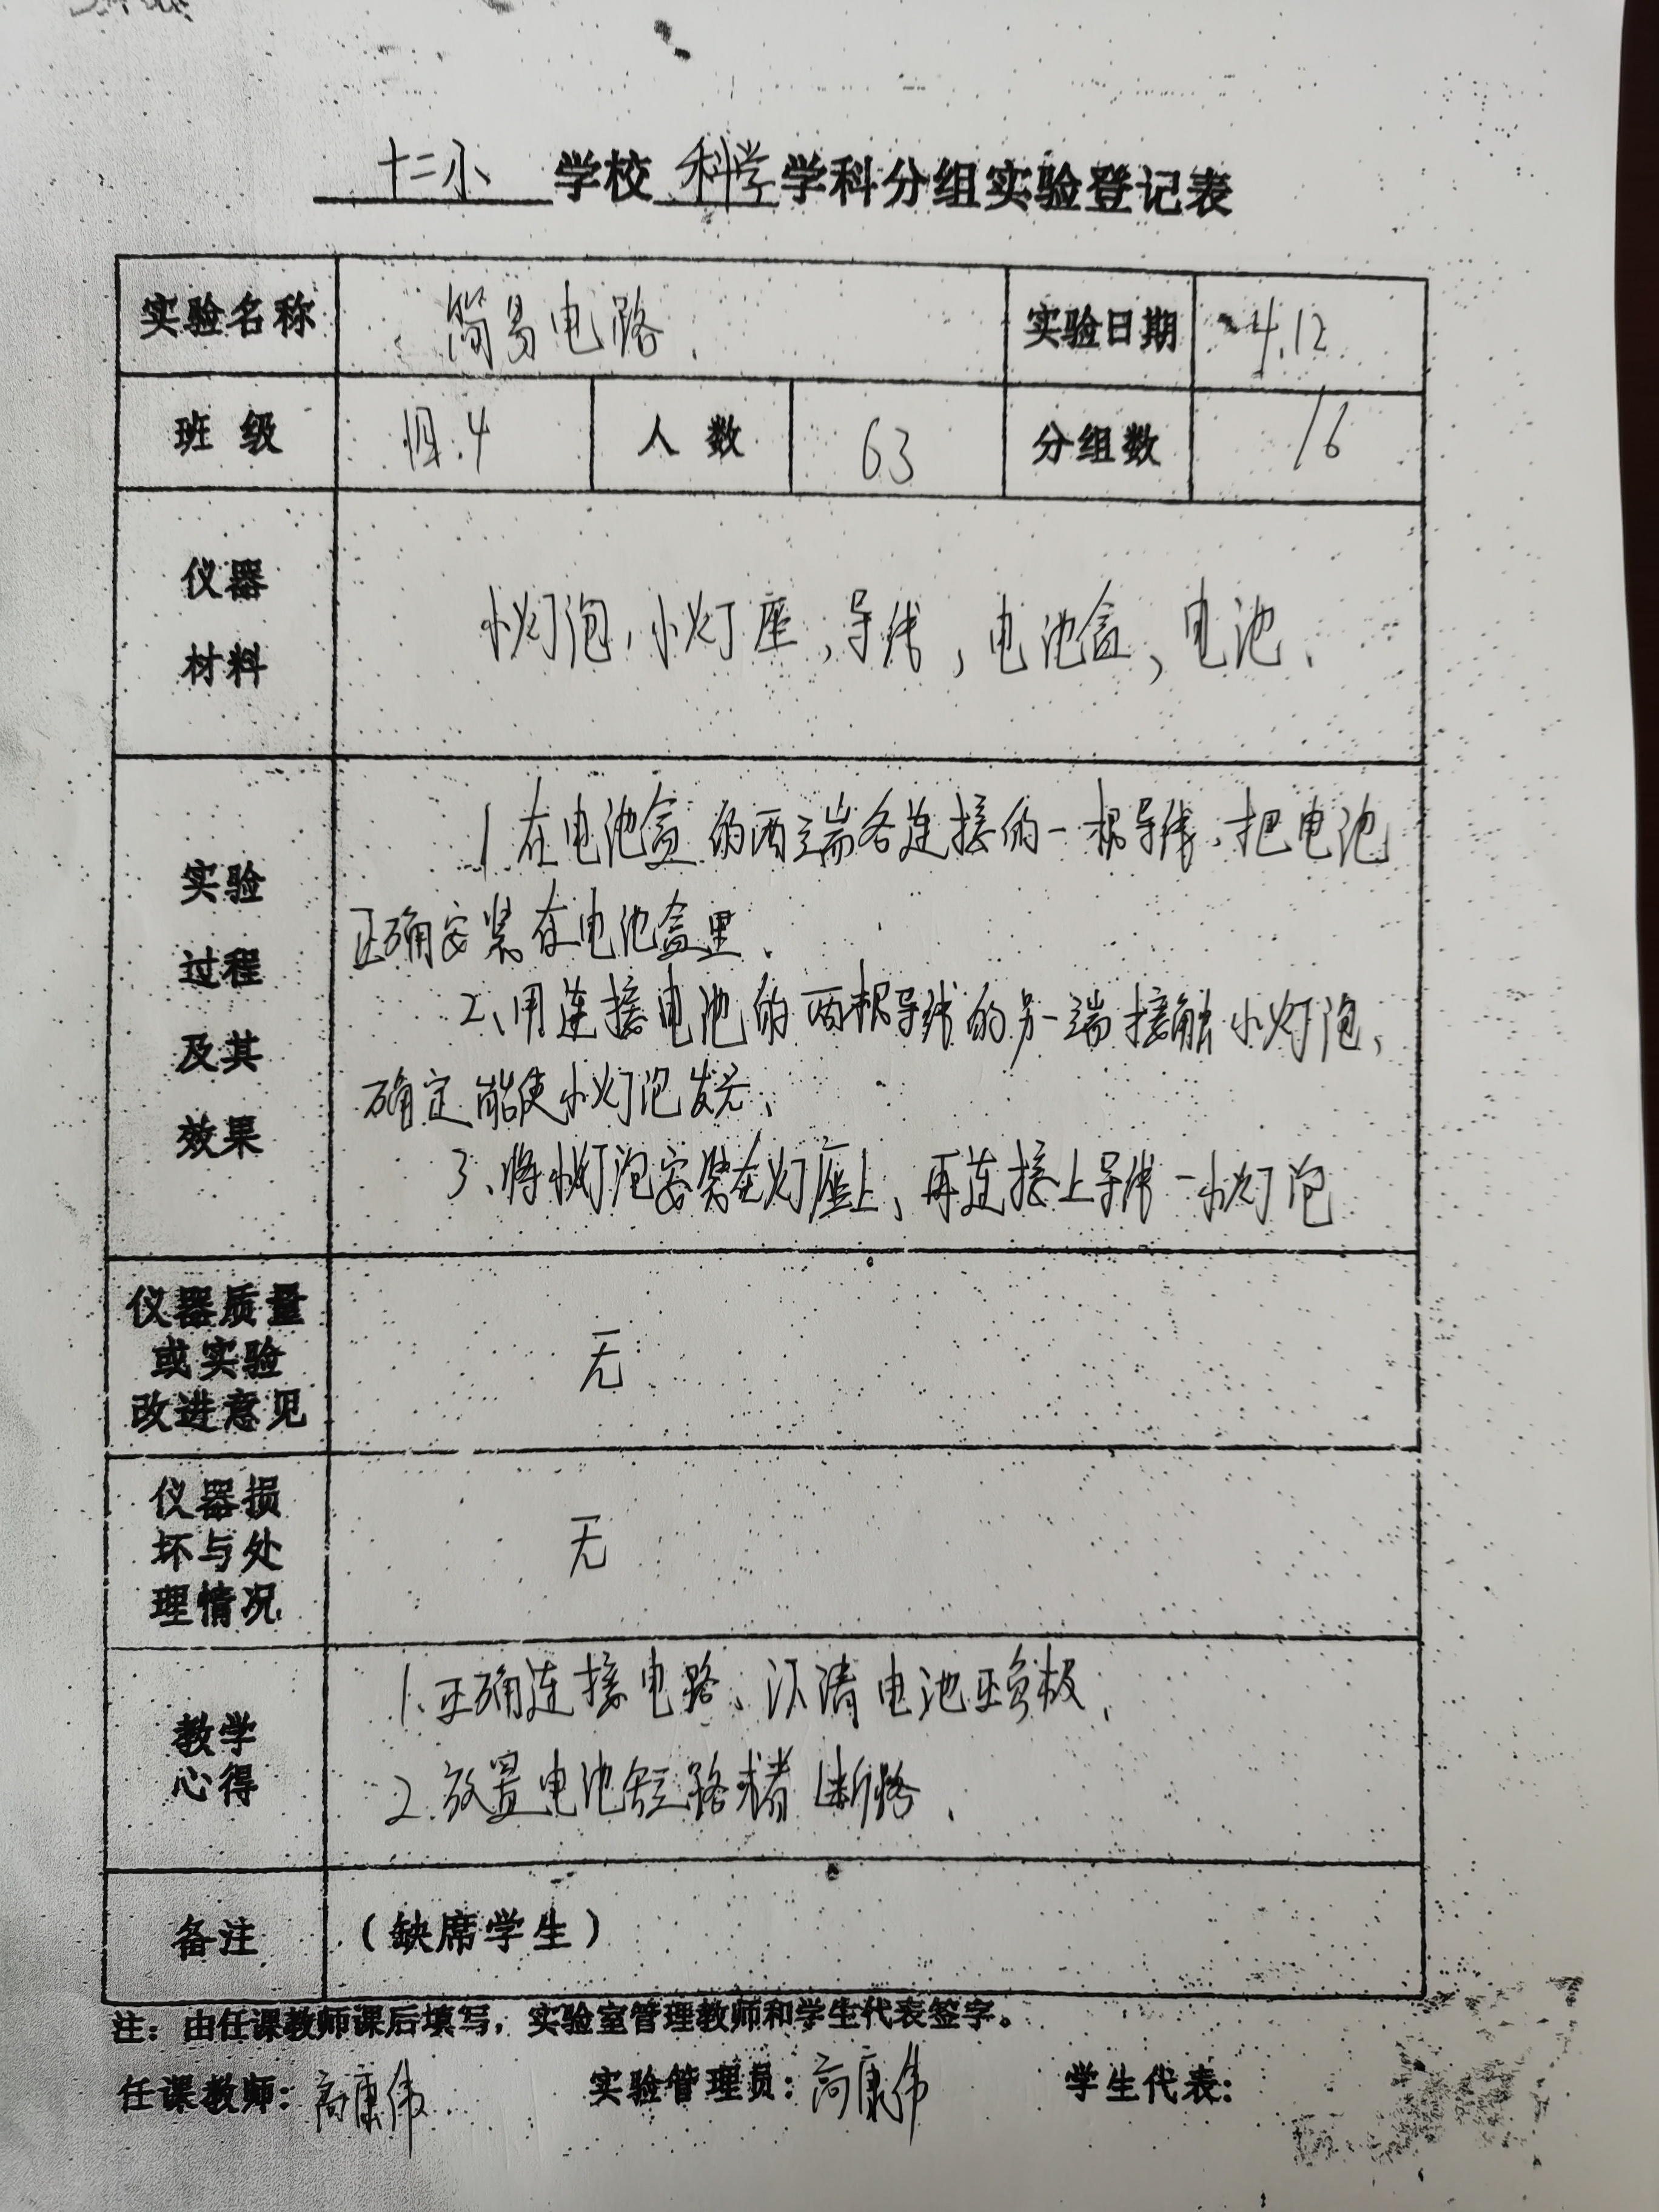 十二小 学校 科学 学科分组实验登记表
实验名称 简易电路. 实验日期 4.12
班级 四.4 人数 63 分组数 16
仪器
材料
小灯泡,小灯座,导线,电池盒、电池、
实验
过程
及其
效果
1.在电池盒的两端各连接的一根导线,把电池
正确安装在电池盒里、
2、用连接电池的两根导线的另一端接触小灯泡,
确定能使小灯泡发光、
3、将小灯泡安装在灯座上、再连接上导线一小灯泡
仪器质量
或实验
改进意见
无
仪器损
坏与处
理情况
无
教学
心得
1.正确连接电路、认清电池正负极、
2.放置电池短路或者断路、
备注 (缺席学生)
注:由任课教师课后填写,实验室管理教师和学生代表签字。
任课教师:高康伟 实验管理员:高康伟 学生代表: